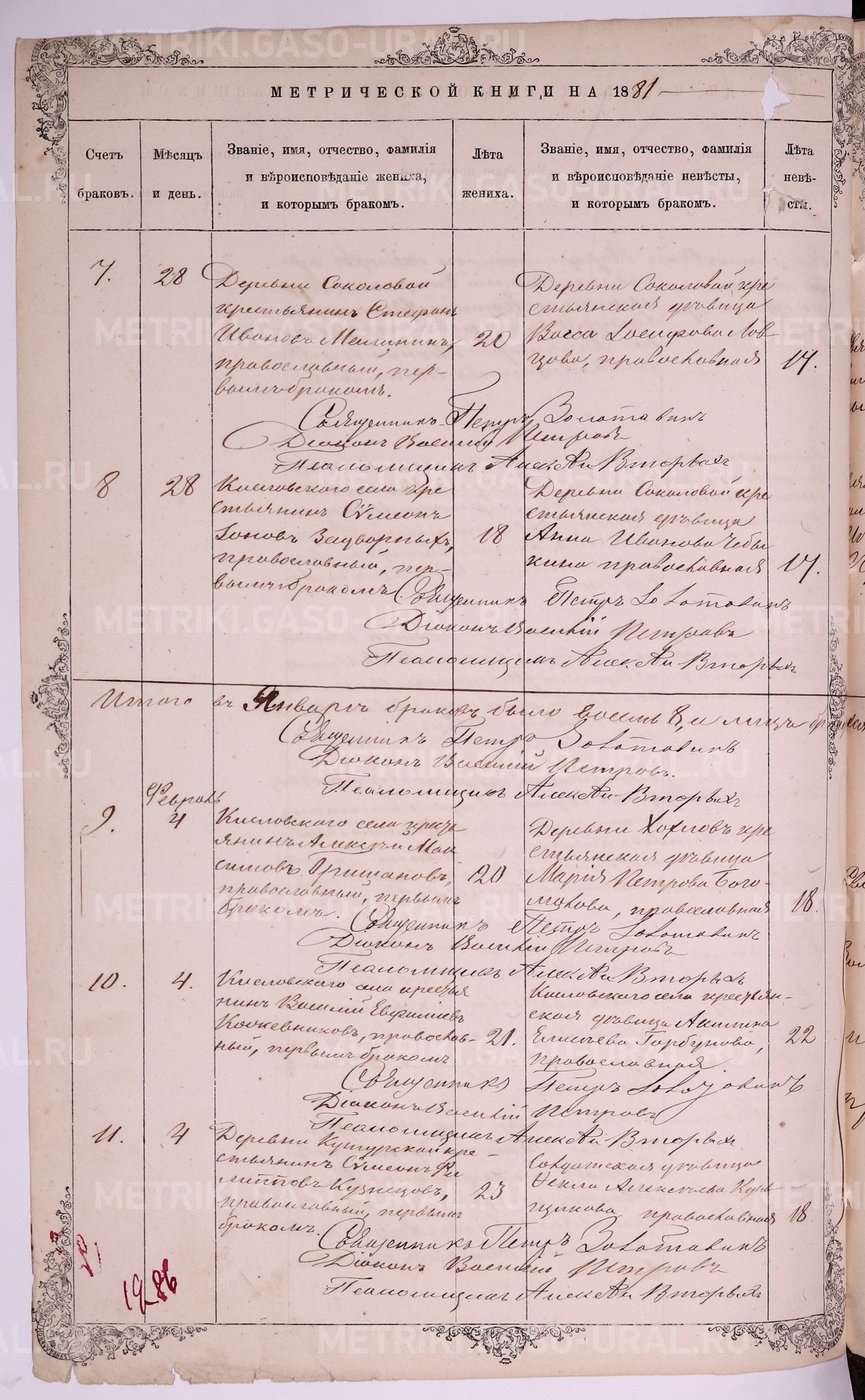 МЕТРИЧЕСКОЙ КНИГИ НА 1881
Счетъ браковъ.
Мѣсяцъ и день.
Званіе, имя, отчество, фамилія
и вѣроисповѣданіе жениха,
и которымъ бракомъ.
Лѣта жениха.
Званіе, имя, отчество, фамилія
и вѣроисповѣданіе невѣсты,
и которымъ бракомъ.
Лѣта невѣ-
сты.
7. 28
Деревни Соколовой
крестьянинъ Стефанъ
Ивановъ Малининъ,
православный, пер-
вымъ бракомъ.
20
Деревни Соколовой кре
стьянская дѣвица
Васса Іосифова
православная
17.
Священникъ Петръ Золотавинъ
Діаконъ Василій Петровъ
Псаломщикъ Алексѣй Вторыхъ
8 28
Кисловского села кре
стьянинъ Сѵмеонъ
Іоновъ Задворныхъ,
православный, пер-
вымъ бракомъ
18
Деревни Соколовой кре
стьянская дѣвица
Анна Иванова Чебы
кина православная
17.
Священникъ Петръ Золотавинъ
Діаконъ Василій Петровъ
Псаломщикъ Алексѣй Вторыхъ
Итого въ Январѣ браковъ было восемь 8, а лицъ
Священникъ Петръ Золотавинъ
Діаконъ Василій Петровъ.
Псаломщикъ Алексѣй Вторыхъ
Февраль
9. 4
Кисловского села кресть
янинъ Алексѣй Мак
симовъ Гришановъ,
православный, первымъ
бракомъ.
20
Деревни Хохловъ кре
стьянская дѣвица
Марія Петрова Бого-
молова, православная
18.
Священникъ Петръ Золотавинъ
Діаконъ Василій Петровъ
Псаломщикъ Алексѣй Вторыхъ
10. 4.
Кисловского села крестья
нинъ Василій Евфиміевъ
Кожевниковъ, православ-
ный, первымъ бракомъ
21.
Кисловского села крестьян-
ская дѣвица Акилина
Елисеева Горбунова,
православная
22
Священникъ Петръ Золотавинъ
Діаконъ Василій Петровъ
Псаломщикъ Алексѣй Вторыхъ
11. 4
Деревни Кунгурской кре-
стьянинъ Сѵмеонъ Фи
липповъ Кузнецовъ,
православный, первымъ
бракомъ.
23
Солдатская дѣвица
Ѳекла Алексѣева
православная
18.
Священникъ Петръ Золотавинъ
Діаконъ Василій Петровъ
Псаломщикъ Алексѣй Вторыхъ
1986
METRIKI.GASO-URAL.RU